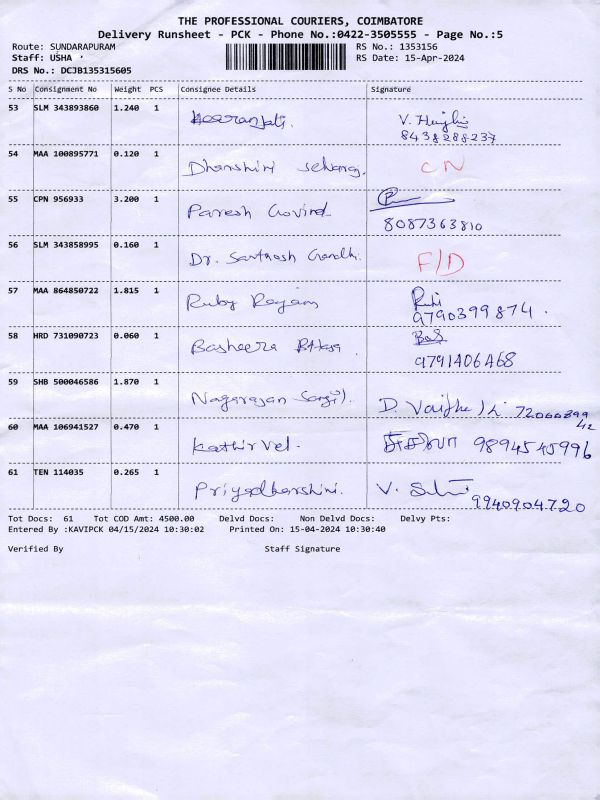 THE PROFESSIONAL COURIERS, COIMBATORE
Delivery Runsheet - PCK - Phone No.:0422-3505555 - Page No.:5
Route: SUNDARAPURAM RS No.: 1353156
Staff: USHA RS Date: 15-Apr-2024
DRS No.: DCJB135315605
S No Consignment No Weight PCS Consignee Details Signature
53 SLM 343893860 1.240 1 V.
8438288237
54 MAA 100895771 0.120 1 Dhanshini CN
55 CPN 956933 3.200 1 Paresh Govind
8087363810
56 SLM 343858995 0.160 1 Dr. Santhosh Gandhi. F/D
57 MAA 864850722 1.815 1 Ruby Rajam
9790399874.
58 HRD 731090723 0.060 1 Basheera
9791406468
59 SHB 500046586 1.870 1 Nagarajan D. 72066899
42
60 MAA 106941527 0.470 1 Kathirvel. 9894545996
61 TEN 114035 0.265 1 Priyadharshini. V.
9940904720
Tot Docs: 61 Tot COD Amt: 4500.00 Delvd Docs: Non Delvd Docs: Delvy Pts:
Entered By :KAVIPCK 04/15/2024 10:30:02 Printed On: 15-04-2024 10:30:40
Verified By Staff Signature